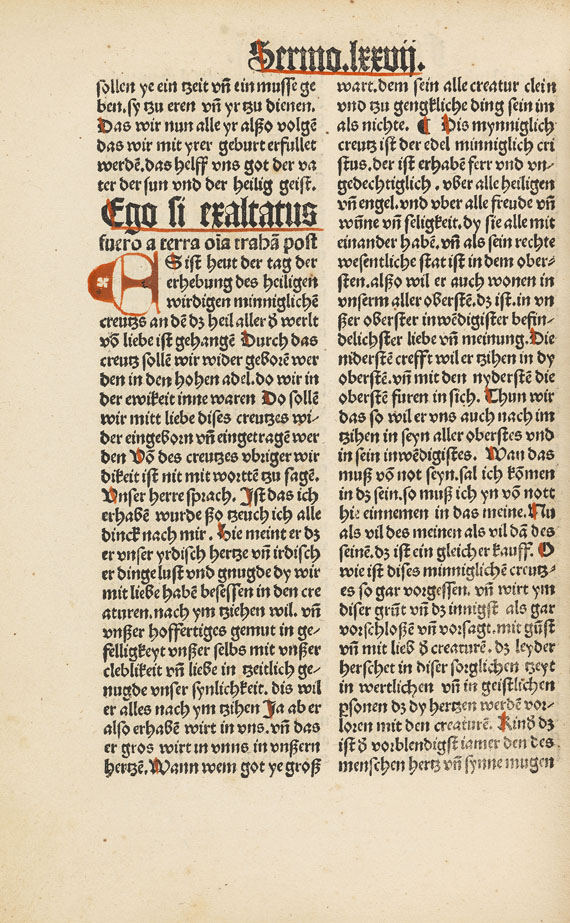 Sermo.lxxvij.
sollen ye ein tzeit vñ ein musse ge
ben.sy tzu eren vñ yr tzu dienen.
Das wir nun alle yr alßo volgẽ
das wir mit yrer geburt erfullet
werdẽ.das helff vns got der va
ter der sun vnd der heilig geist.
Ego si exaltatus
fuero a terra oĩa trahã post
ES ist heut der tag der
erhebung des heiligen
wirdigen minniglichẽ
creutzs an dẽ dz heil aller d̕ werlt
võ liebe ist gehangẽ Durch das
creutz sollẽ wir wider geborẽ wer
den in den hohen adel.do wir in
der ewikeit inne waren Do sollẽ
wir mitt liebe dises creutzes wi-
der eingeborn vñ eingetragẽ wer
den Võ des creutzes vbriger wir
dikeit ist nit mit worttẽ tzu sagẽ.
Vnser herre sprach. Ist das ich
erhabẽ wurde ßo tzeuch ich alle
dinck nach mir. hie meint er dz
er vnser yrdisch hertze vñ irdisch
er dinge lust vnd gnugde dy wir
mit liebe habẽ besessen in den cre
aturen.nach ym tziehen wil. vñ
vnßer hoffertiges gemut in ge-
felligkeyt vnßer selbs mit vnßer
cleblikeit vñ liebe in tzeitlich ge-
nugde vnser synlichkeit. dis wil
er alles nach ym tzihen Ja ab er
also erhabẽ wirt in vns.vñ das
er gros wirt in vnns in vnßern
hertzẽ. Wann wem got ye groß
wart.dem sein alle creatur clein
vnd tzu gengkliche ding sein im
als nichte. ¶ Dis mynniglich
creutz ist der edel minniglich cri
stus.der ist erhabẽ ferr vnd vn-
gedechtiglich. vber alle heiligen
vñ engel.vnd vber alle freude vñ
wũne vñ seligkeit.dy sie alle mit
einander habẽ.vñ als sein rechte
wesentliche stat ist in dem ober-
sten.alßo wil er auch wonen in
vnserm aller oberstẽ.dz ist.in vn
ßer oberster inwẽdigister befin-
delichster liebe vñ meinung. Die
niderstẽ crefft wil er tzihen in dy
oberstẽ.vñ mit den nyderstẽ die
oberstẽ furen in sich. Thun wir
das so wil er vns auch nach im
tzihen in seyn aller oberstes vnd
in sein inwẽdigistes. Wan das
muß võ not seyn.sal ich kõmen
in dz sein.so muß ich yn võ nott
hie einnemen in das meine. Nu
als vil des meinen als vil dã des
seinẽ.dz ist ein gleicher kauff. O
wie ist dises minniglichẽ creutz-
es so gar vorgessen. vñ wirt ym
diser grũt vñ dz innigst als gar
vorschloßẽ vñ vorsagt.mit gũst
vñ mit lieb d̕ creaturẽ. dz leyder
herschet in diser sorglichen tzeyt
in wertlichen vñ in geistlichen
ꝑsonen dz dy hertzen werdẽ vor-
loren mit den creaturẽ. Kind̕ dz
ist d̕ vorblendigst iamer den des
menschen hertz vñ synne mugen